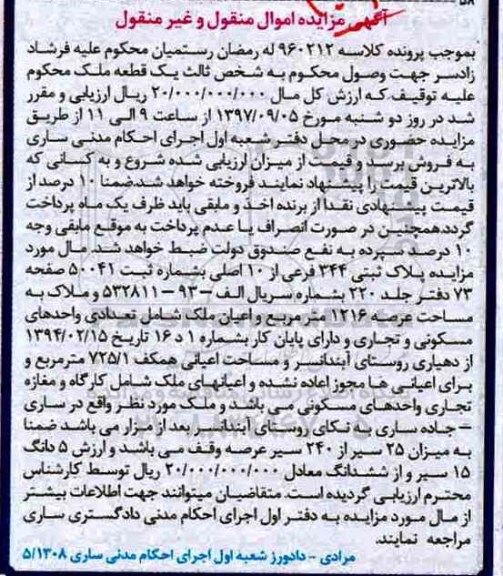 ۵۸
آگهی مزایده اموال منقول و غیر منقول
بموجب پرونده کلاسه ۹۶۰۲۱۲ له رمضان رستمیان محکوم علیه فرشاد
زادسر جهت وصول محکوم به شخص ثالث یک قطعه ملک محکوم
علیه توقیف که ارزش کل مال ۲۰/۰۰۰/۰۰۰/۰۰۰ ریال ارزیابی و مقرر
شد در روز دو شنبه مورخ ۱۳۹۷/۰۹/۰۵ از ساعت ۹ الی ۱۱ از طریق
مزایده حضوری در محل دفتر شعبه اول اجرای احکام مدنی ساری
به فروش برسد و قیمت از میزان ارزیابی شده شروع و به کسانی که
بالاترین قیمت را پیشنهاد نمایند فروخته خواهد شد.ضمنا ۱۰ درصد از
قیمت پیشنهادی نقدا از برنده اخذ و مابقی باید ظرف یک ماه پرداخت
گردد.همچنین در صورت انصراف یا عدم پرداخت به موقع مابقی وجه
۱۰ درصد سپرده به نفع صندوق دولت ضبط خواهد شد. مال مورد
مزایده پلاک ثبتی ۳۴۴ فرعی از ۱۰ اصلی بشماره ثبت ۵۰۰۴۱ صفحه
۷۳ دفتر جلد ۲۲۰ بشماره سریال الف – ۹۳ – ۵۳۲۸۱۱ و ملاک به
مساحت عرصه ۱۲۱۶ متر مربع و اعیان ملک شامل تعدادی واحدهای
مسکونی و تجاری و دارای پایان کار بشماره ۱ د ۱۶ تاریخ ۱۳۹۴/۰۲/۱۵
از دهیاری روستای آبندانسر و مساحت اعیانی همکف ۷۲۵/۱ مترمربع و
برای اعیانی ها مجوز اعاده نشده و اعیانهای ملک شامل کارگاه و مغازه
تجاری واحدهای مسکونی می باشد و ملک مورد نظر واقع در ساری
– جاده ساری به نکای روستای آبندانسر بعد از مزار می باشد ضمنا
به میزان ۲۵ سیر از ۲۴۰ سیر عرصه وقف می باشد و ارزش ۵ دانگ
۱۵ سیر و از ششدانگ معادل ۲۰/۰۰۰/۰۰۰/۰۰۰ ریال توسط کارشناس
محترم ارزیابی گردیده است. متقاضیان میتوانند جهت اطلاعات بیشتر
از مال مورد مزایده به دفتر اول اجرای احکام مدنی دادگستری ساری
مراجعه نمایند.
مرادی – دادورز شعبه اول اجرای احکام مدنی ساری ۵/۱۳۰۸